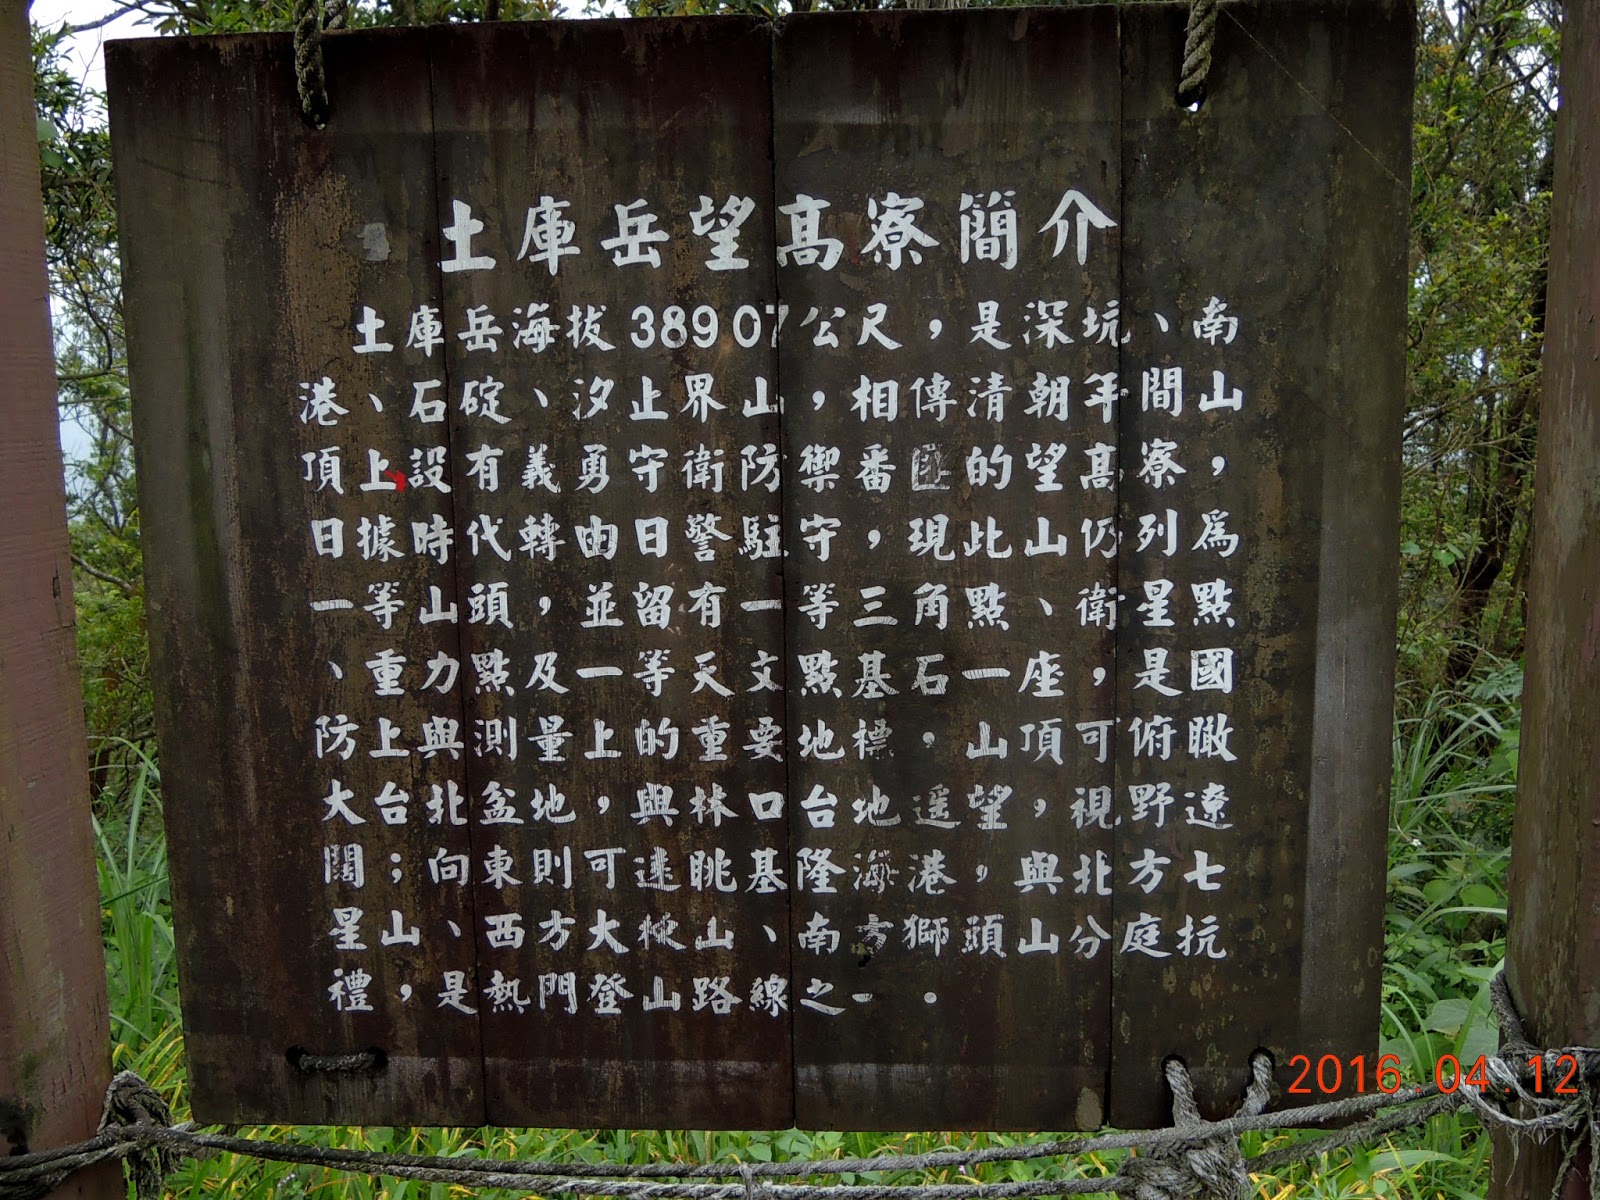 土庫岳望高寮簡介
土庫岳海拔389 07公尺，是深坑、南
港、石碇、汐止界山，相傳清朝年間山
頂上設有義勇守衛防禦番匪的望高寮，
日據時代轉由日警駐守，現此山仍列為
一等山頭，並留有一等三角點、衛星點
、重力點及一等天文點基石一座，是國
防上與測量上的重要地標，山頂可俯瞰
大台北盆地，與林口台地遥望，視野遼
闊；向東則可遠眺基隆海港，與北方七
星山、西方大棟山、南方獅頭山分庭抗
禮，是熱門登山路線之一。
2016.04.12